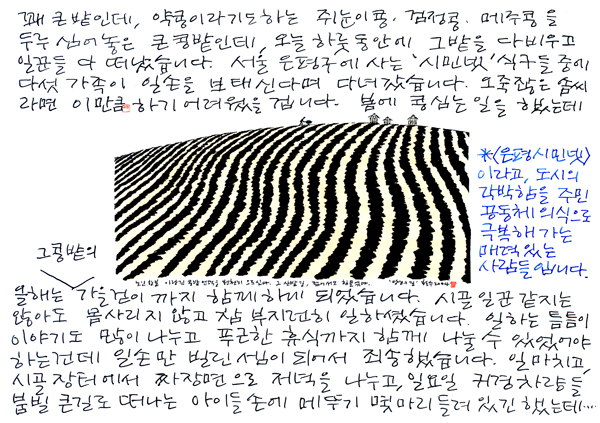 꽤 큰 밭인데, 약콩이라기도하는 쥐눈이콩, 검정콩, 메주콩을
두루 심어놓은 큰 콩밭인데, 오늘 하룻동안에 그밭을 다 비우고
일꾼들 다 떠났습니다. 서울 은평구에 사는 '시민넷' 식구들 중에
다섯 가족이 일손을 보태신다며 다녀갔습니다.
라면 이만큼 하기 어려웠을 겁니다. 봄에 콩심는 일을 했는데
*<은평시민넷>
이라고, 도시의
각박함을 주민
공동체 의식으로
극복해 가는
매력있는
사람들입니다.
그콩밭의
올해는 가을걷이 까지 함께하게 되었습니다. 시골 일꾼 같지는
않아도 몸사리지 않고 참 부지런히 일하셨습니다. 일하는 틈틈이
이야기도 많이 나누고 푹근한 휴식까지 함께 나눌 수 있었어야
하는건데 일손만 빌린 셈이 되어서 죄송했습니다. 일 마치고,
시골 장터에서 짜장면으로 저녁을 나누고, 일요일 귀경차량들,
붐빌 큰길로 떠나는 아이들 손에 메뚜기 몇마리 들려 있긴 했는데…